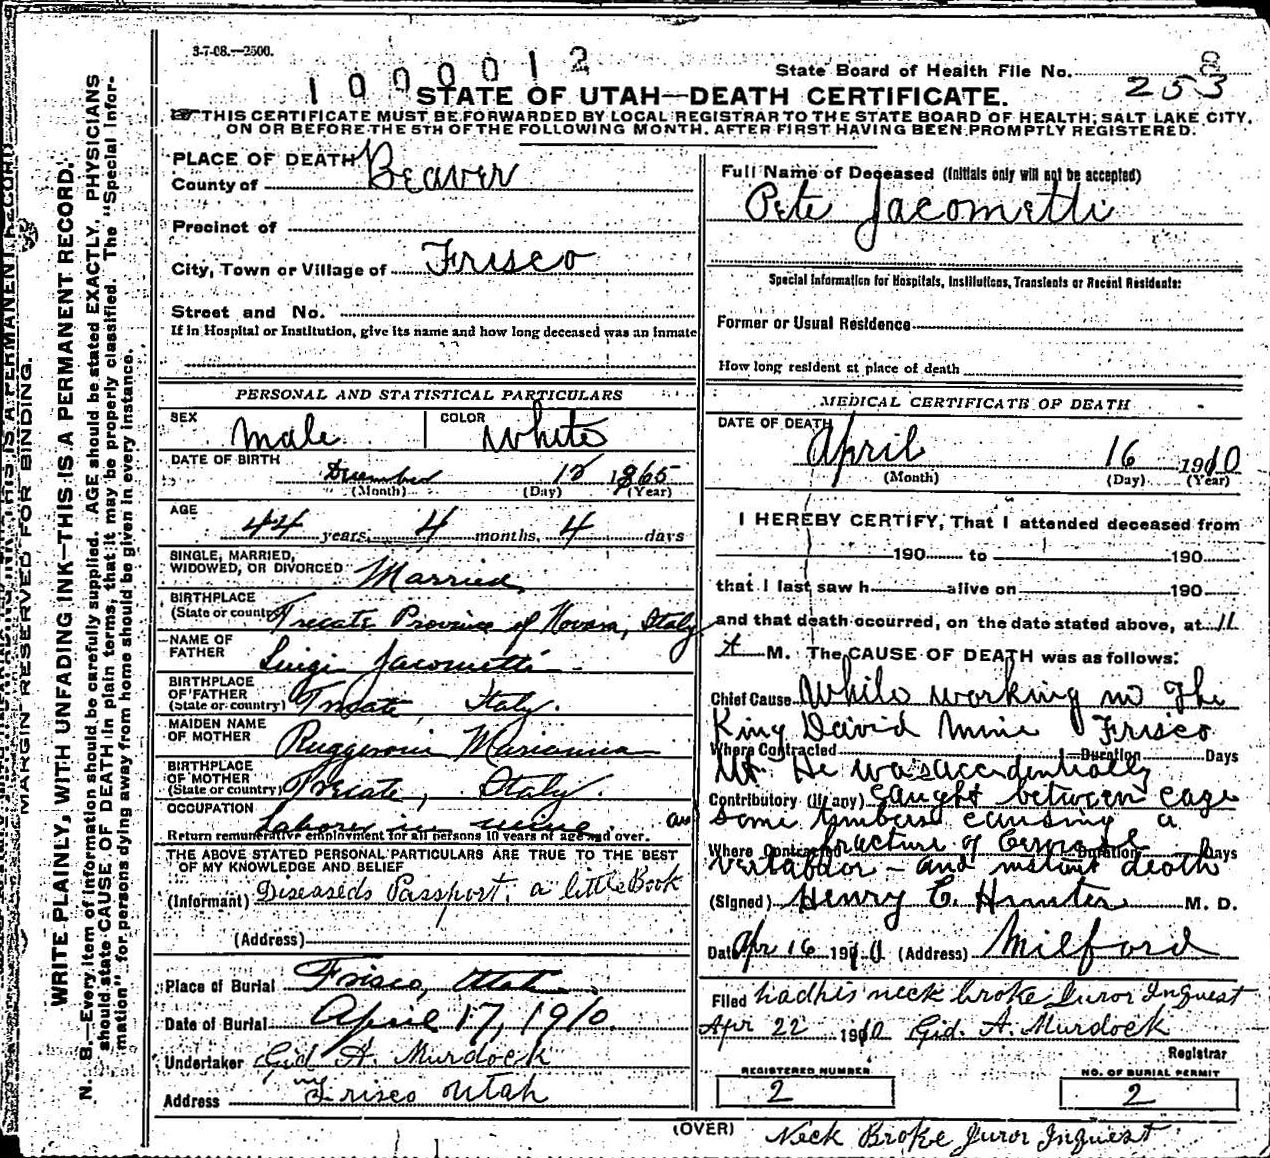 3-7-08.—2500.
1000012
State Board of Health File No. 253
8
STATE OF UTAH—DEATH CERTIFICATE.
THIS CERTIFICATE MUST BE FORWARDED BY LOCAL REGISTRAR TO THE STATE BOARD OF HEALTH, SALT LAKE CITY,
ON OR BEFORE THE 5TH OF THE FOLLOWING MONTH, AFTER FIRST HAVING BEEN PROMPTLY REGISTERED.
PLACE OF DEATH
County of Beaver
Precinct of
City, Town or Village of Frisco
Street and No.
If in Hospital or Institution, give its name and how long deceased was an inmate
PERSONAL AND STATISTICAL PARTICULARS
SEX Male COLOR White
DATE OF BIRTH December 12 1865
(Month) (Day) (Year)
AGE
44 years, 4 months, 4 days
SINGLE, MARRIED,
WIDOWED, OR DIVORCED Married
BIRTHPLACE
(State or country) Trecate Province of Novara, Italy
NAME OF
FATHER Luigi Jacometti
BIRTHPLACE
OF FATHER
(State or country) Trecate, Italy.
MAIDEN NAME
OF MOTHER Ruggeroni Marianna
BIRTHPLACE
OF MOTHER
(State or country) Trecate, Italy.
OCCUPATION Laborer in mine
Return remunerative employment for all persons 10 years of age and over.
THE ABOVE STATED PERSONAL PARTICULARS ARE TRUE TO THE BEST
OF MY KNOWLEDGE AND BELIEF
(Informant) Deseased's Passport. a little Book
(Address)
Place of Burial Frisco, Utah
Date of Burial April 17, 1910.
Undertaker Gid A. Murdock
Address Frisco Utah
Full Name of Deceased (Initials only will not be accepted)
Pete Jacometti
Special Information for Hospitals, Institutions, Transients or Recent Residents:
Former or Usual Residence
How long resident at place of death
MEDICAL CERTIFICATE OF DEATH
DATE OF DEATH
April 16 1910
(Month) (Day) (Year)
I HEREBY CERTIFY, That I attended deceased from
190 to 190
that I last saw h alive on 190
and that death occurred, on the date stated above, at 11
M. The CAUSE OF DEATH was as follows:
Chief Cause While working in The
King David Mine Frisco
Where Contracted Duration Days
Ut. He was accedentially
Contributory (if any) caught between cage
and some timbers causing a
fracture of Cervical
Where Contracted Duration Days
vertabdor - and instant death
(Signed) Henry C. Hunter M. D.
Date Apr 16 1910 (Address) Milford
Filed had his neck broke Juror Inquest
Apr 22 1910 Gid. A. Murdock
Registrar
REGISTERED NUMBER
2
NO. OF BURIAL PERMIT
2
(OVER) Neck Broke Juror Inquest
MARGIN RESERVED FOR BINDING.
WRITE PLAINLY, WITH UNFADING INK—THIS IS A PERMANENT RECORD.
N. B.—Every item of information should be carefully supplied. AGE should be stated EXACTLY. PHYSICIANS
should state CAUSE OF DEATH in plain terms, that it may be properly classified. The "Special Infor-
mation" for persons dying away from home should be given in every instance.